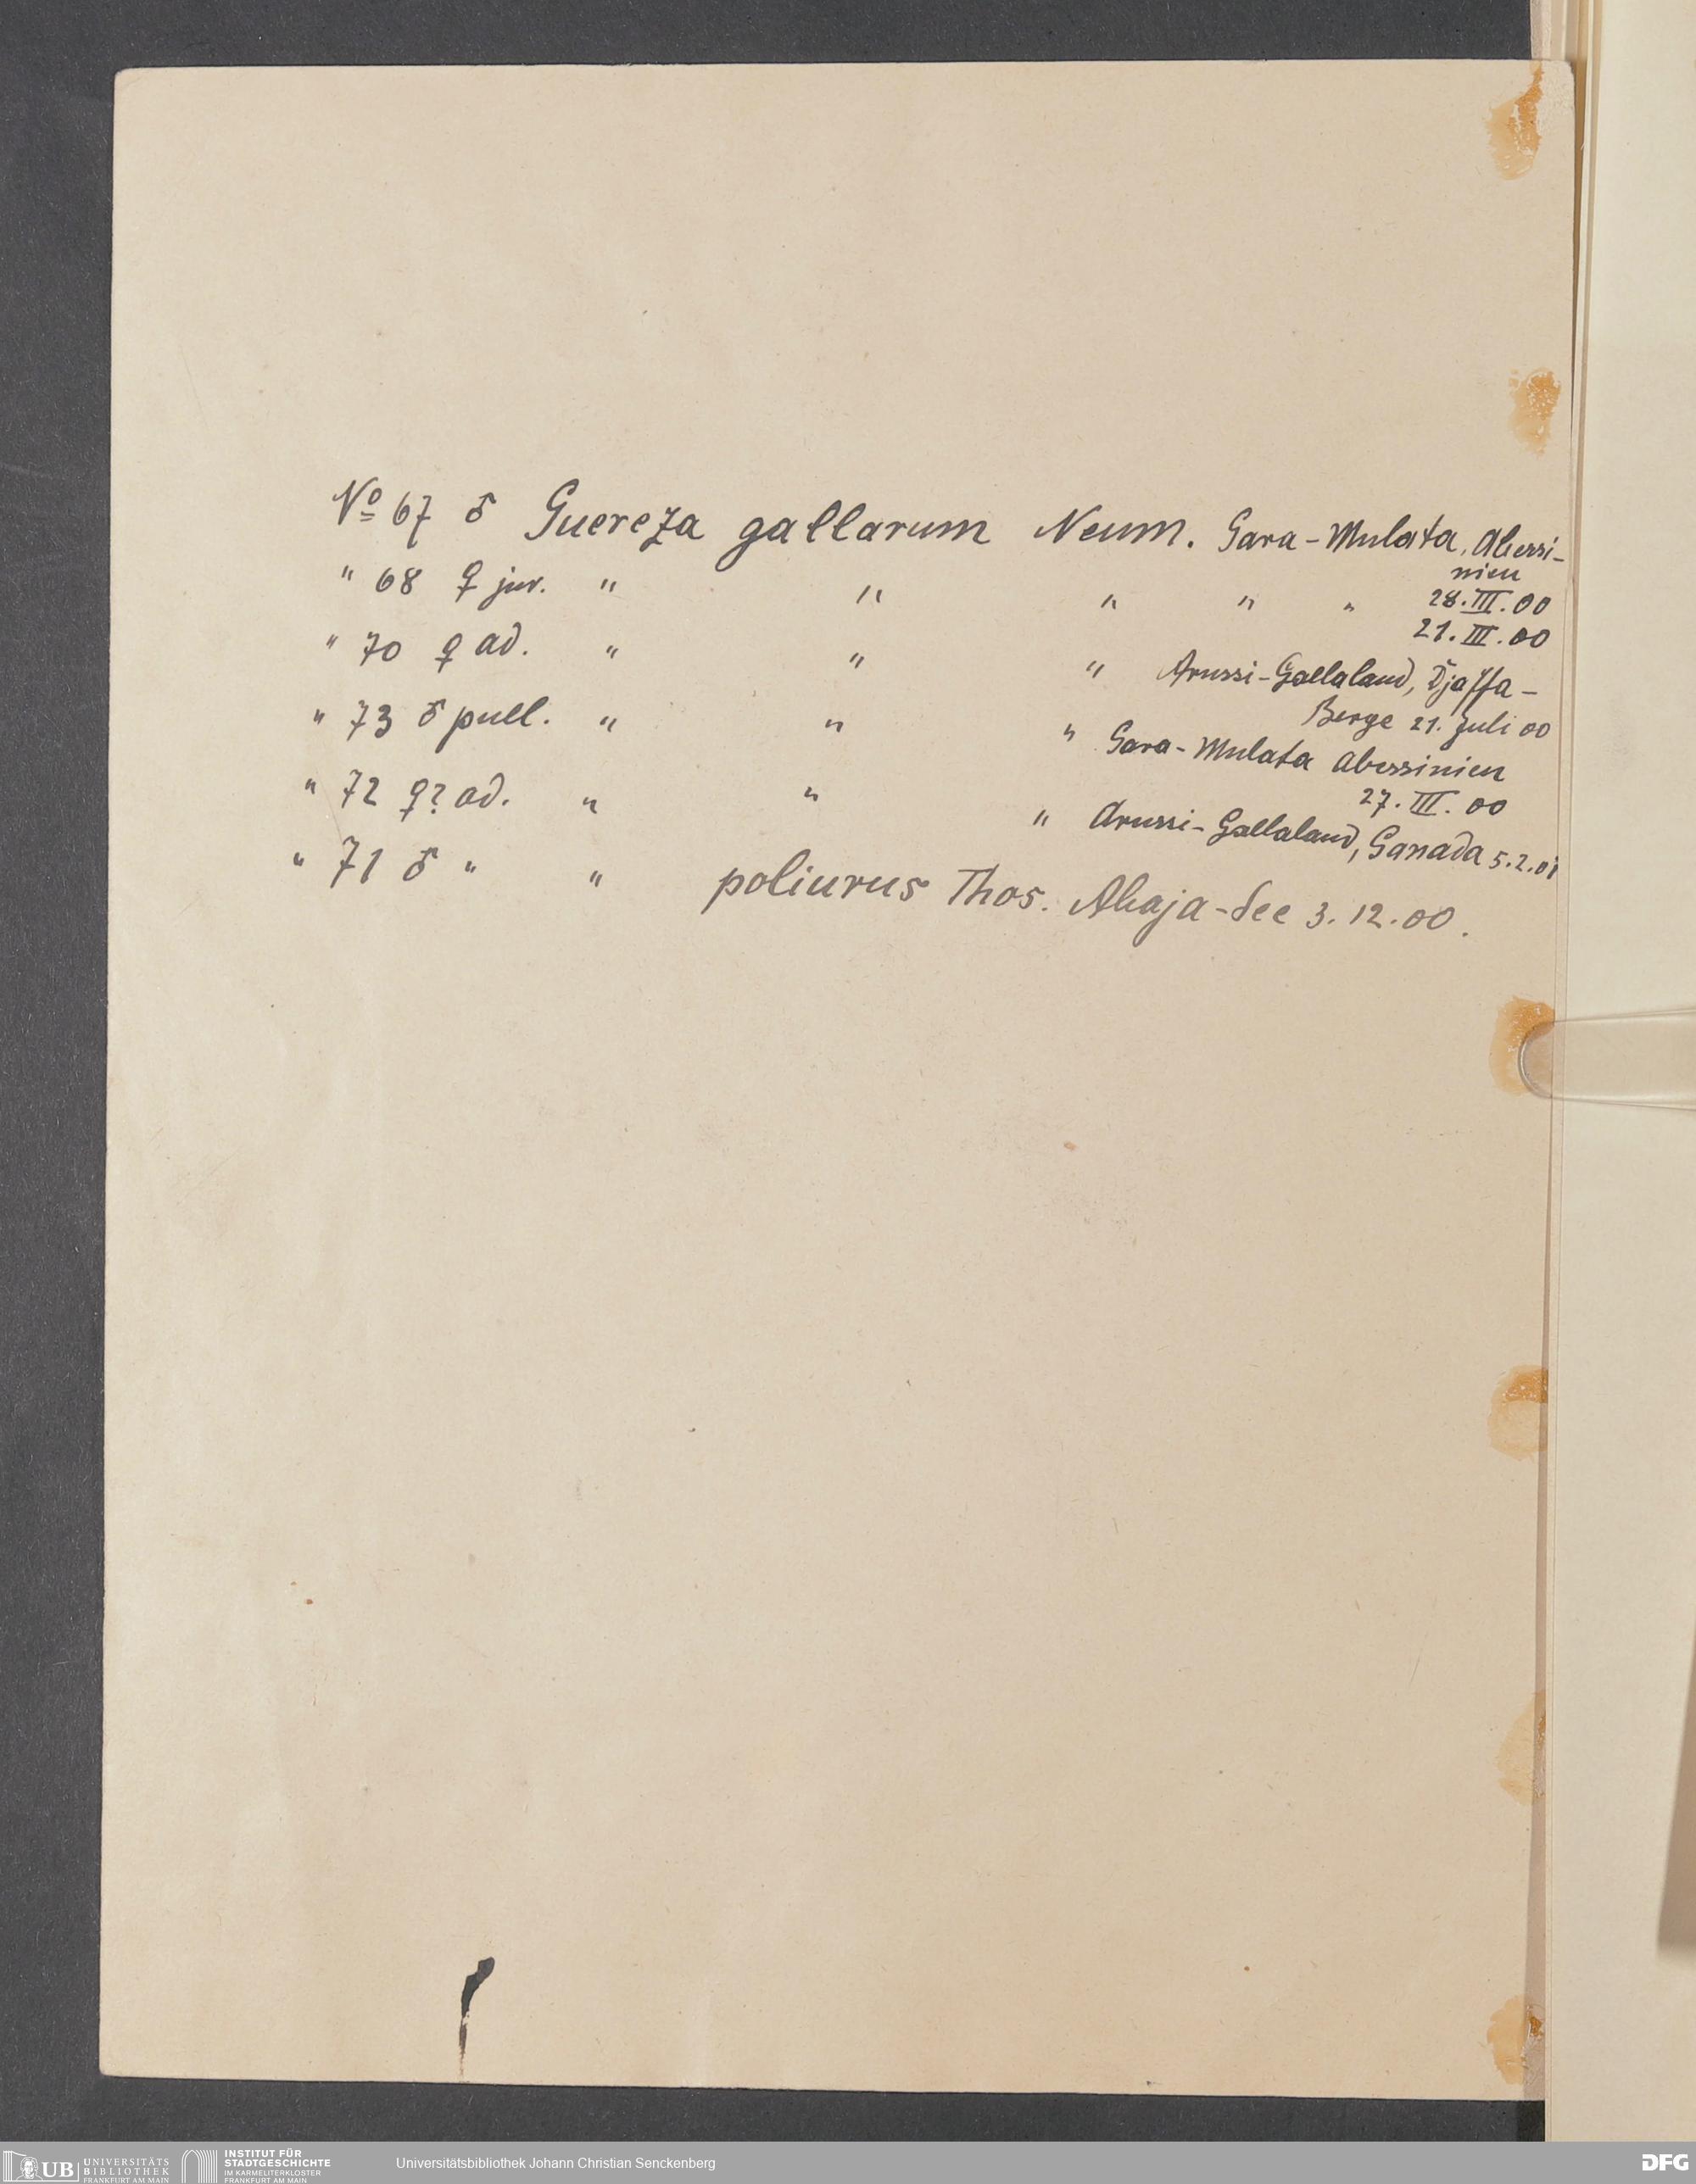 Nº 67 ♂ Guereza gallarum Neum. Gara-Mulata, Abessi-
nien
28.III.00
" 68 ♀ juv. " " " " " 21.III.00
" 70 ♀ ad. " " " Arussi-Gallaland, Djaffa-
Berge 21. Juli 00
" 73 ♂ pull. " " " Gara-Mulata Abessinien
27.III.00
" 72 ♀? ad. " " " Arussi-Gallaland, Ganada 5.2.01
" 71 ♂ " " poliurus Thos. Abaja-See 3.12.00.
UB UNIVERSITÄTS
BIBLIOTHEK
FRANKFURT AM MAIN
INSTITUT FÜR
STADTGESCHICHTE
IM KARMELITERKLOSTER
FRANKFURT AM MAIN
Universitätsbibliothek Johann Christian Senckenberg
DFG